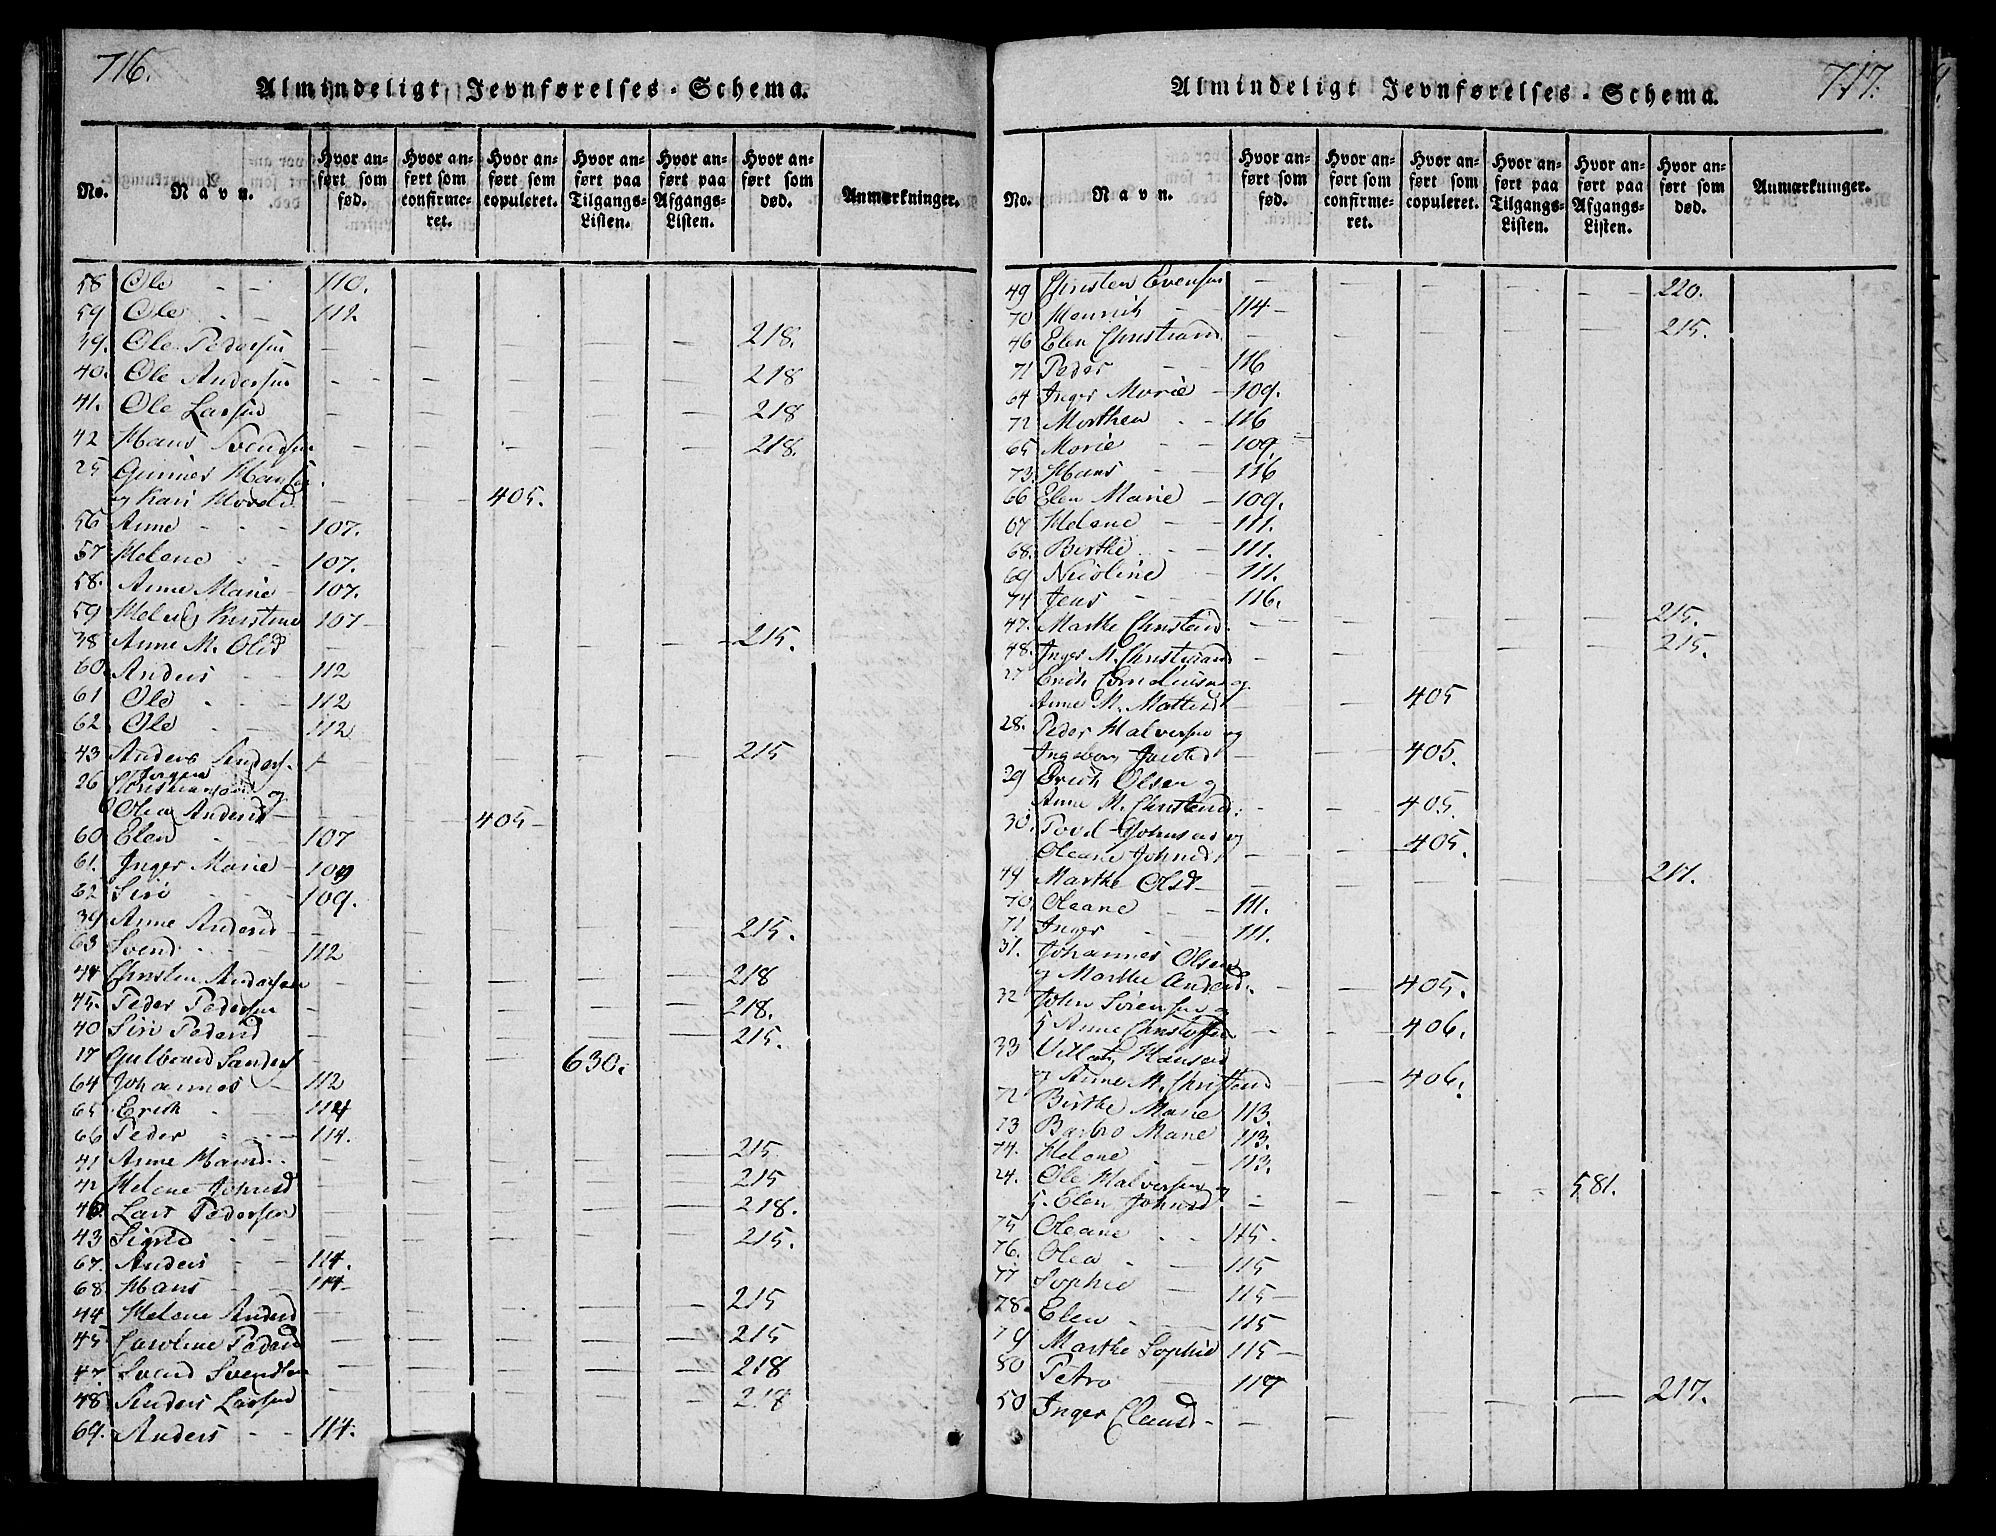 716.
Almindeligt Jevnførelses-Schema.
No. Navn. Hvor anført som fød. Hvor anført som confirmeret. Hvor anført som copuleret. Hvor anført paa Tilgangs-Listen. Hvor anført paa Afgangs-Listen. Hvor anført som død. Anmærkninger.
58 Ole - - 110.
59 Ole - - 112
39. Ole Pedersen - - - - - 218.
40. Ole Andersen - - - - - 218
41. Ole Larsen - - - - - 218
42 Hans Svendsen - - - - - 218.
25 Gunner Hansen
og Kari Hovelsd. - - 405.
56 Anne - - - 107.
57 Helene - 107.
58. Anne Marie - 107.
59 Helvig Kirstine 107 -
38 Anne M. Olsd - - - - - 215.
60. Anders - - 112
61 Ole - - 112
62. Ole - - 112
43 Anders Anders. - - - - - 215
26 Christian og
Olea Andersd - - - 405 -
60. Elen - - 107
61. Inger Marie - 109
62 Siri - - 109.
39 Anne Andersd - - - - - 215.
63. Svend - - 112
44 Christen Andersen - - - - - 218
45. Peder Pedersen - - - - - 218.
40 Siri Pedersd - - - - - 215.
17 Gulbrand Sanders - - - 630.
64 Johannes - 112
65 Erich - - 114
66 Peder - - - 114.
41 Anne Hansd. - - - - - 215
42 Helene Johnsd - - - - - 215
46. Lars Pedersen - - - - - 218.
43 Sigrid - - - - - 215.
67. Anders - - 114.
68 Hans - - 114 -
44 Helene Andersd - - - - - 215
45 Caroline Pedersd - - - - - 215
47. Svend Svendsen - - - - - 218
48 Anders Larsen - - - - - 218
69. Anders - - 114.
717.
Almindeligt Jevnførelses-Schema.
No. Navn. Hvor anført som fød. Hvor anført som confirmeret. Hvor anført som copuleret. Hvor anført paa Tilgangs-Listen. Hvor anført paa Afgangs-Listen. Hvor anført som død. Anmærkninger.
49 Christen Evensen - - - - - 220.
70 Henrich - - 114 -
46 Elen Christiansd. - - - - - 215.
71 Peder - - 116
64 Inger Marie - 109.
72 Morthen - - 116
65 Marie - - 109. -
73. Hans - - 116
66 Elen Marie - 109.
67 Helene - - 111.
68. Birthe - - 111.
69 Nicoline - 111.
74 Jens - - 116.
47. Marthe Christensd. - - - - - 215.
48. Inger M. Christiansd - - - - - 215.
27 Erich Corneliusen og
Anne M. - - 405
28. Peder Halvorsen og
Ingebor - - 405.
29 Erich Olsen og
Anne M. Christensd: - - 405.
30. Povel Johnsen og
Oleane Johnsd. - - 405.
49 Marthe Olsd - - - - - 217.
70. Oleane - - 111.
71 Inger - - 111.
31. Johannes Olsen
og Marthe Andersd. - - 405.
32 John Sörensen og
Anne Christoffersd - - 406.
33 Hansen
og Anne M. Christensd - - 406.
72 Birthe Marie 113.
73 Barbro Marie 113.
74. Helene - - 113.
24. Ole Halvorsen og
Elen Johnsd - - - - 581.
75 Oleane - - 115.
76. Olea - - 115
77 Sophie - 115 -
78. Elen - - 115
79 Marthe Sophie 115 -
80 Petro - - 117
50 Inger Clausd - - - - - 217.